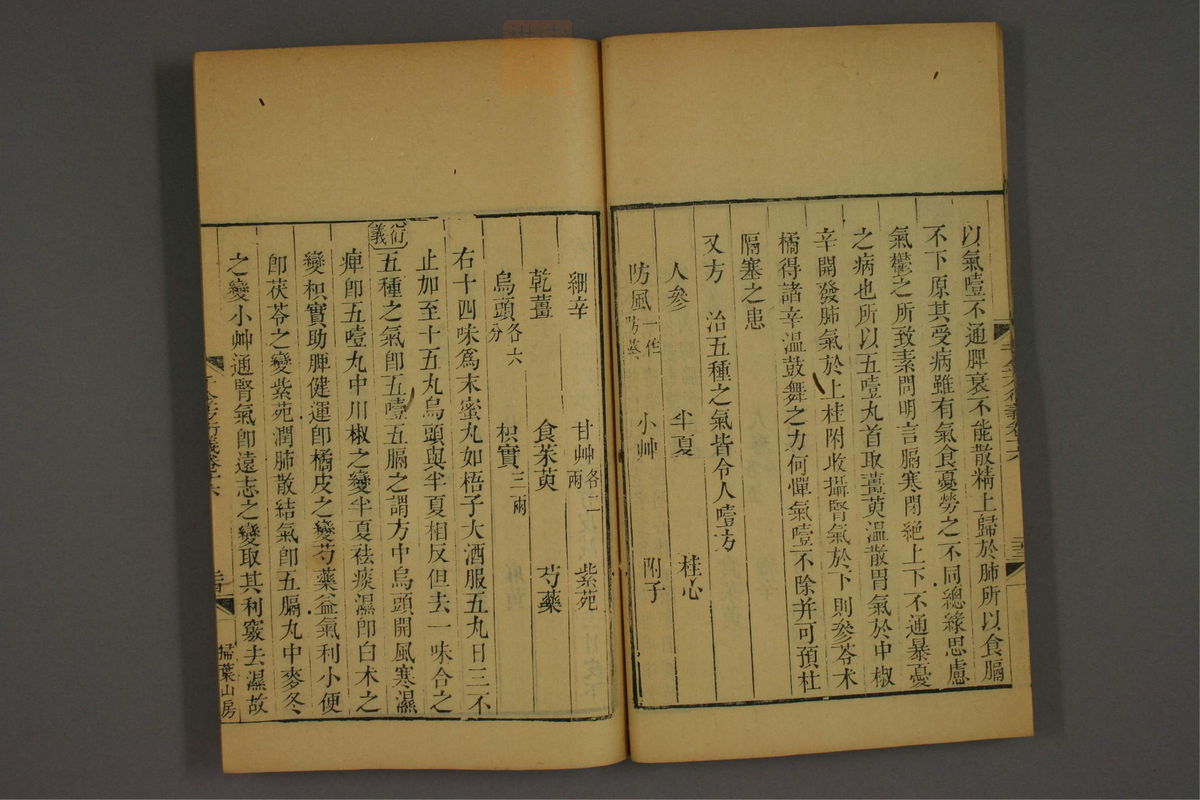 以氣噎不通脾衰不能散精上歸於肺所以食膈
不下原其受病雖有氣食憂勞之不同總緣思慮
氣鬱之所致素問明言膈寒閉絕上下不通暴憂
之病也所以五噎丸首取薑萸溫散胃氣於中椒
辛開發肺氣於上桂附收攝腎氣於下則參苓朮
橘得諸辛溫鼓舞之力何憚氣噎不除并可預杜
隔塞之患
又方 治五種之氣皆令人噎方
人參 半夏 桂心
防風一作防葵 小艸 附子
細辛 甘艸各二兩 紫菀
乾薑 食茱萸 芍藥
烏頭各六分 枳實三兩
右十四味爲末蜜丸如梧子大酒服五丸日三不
止加至十五丸烏頭與半夏相反但去一味合之
衍義 五種之氣卽五噎五膈之謂方中烏頭開風寒濕
痺卽五噎丸中川椒之變半夏祛痰濕卽白朮之
變枳實助脾健運卽橘皮之變芍藥益氣利小便
卽茯苓之變紫菀潤肺散結氣卽五膈丸中麥冬
之變小艸通腎氣卽遠志之變取其利竅去濕故
千金方衍義卷十六
掃葉山房